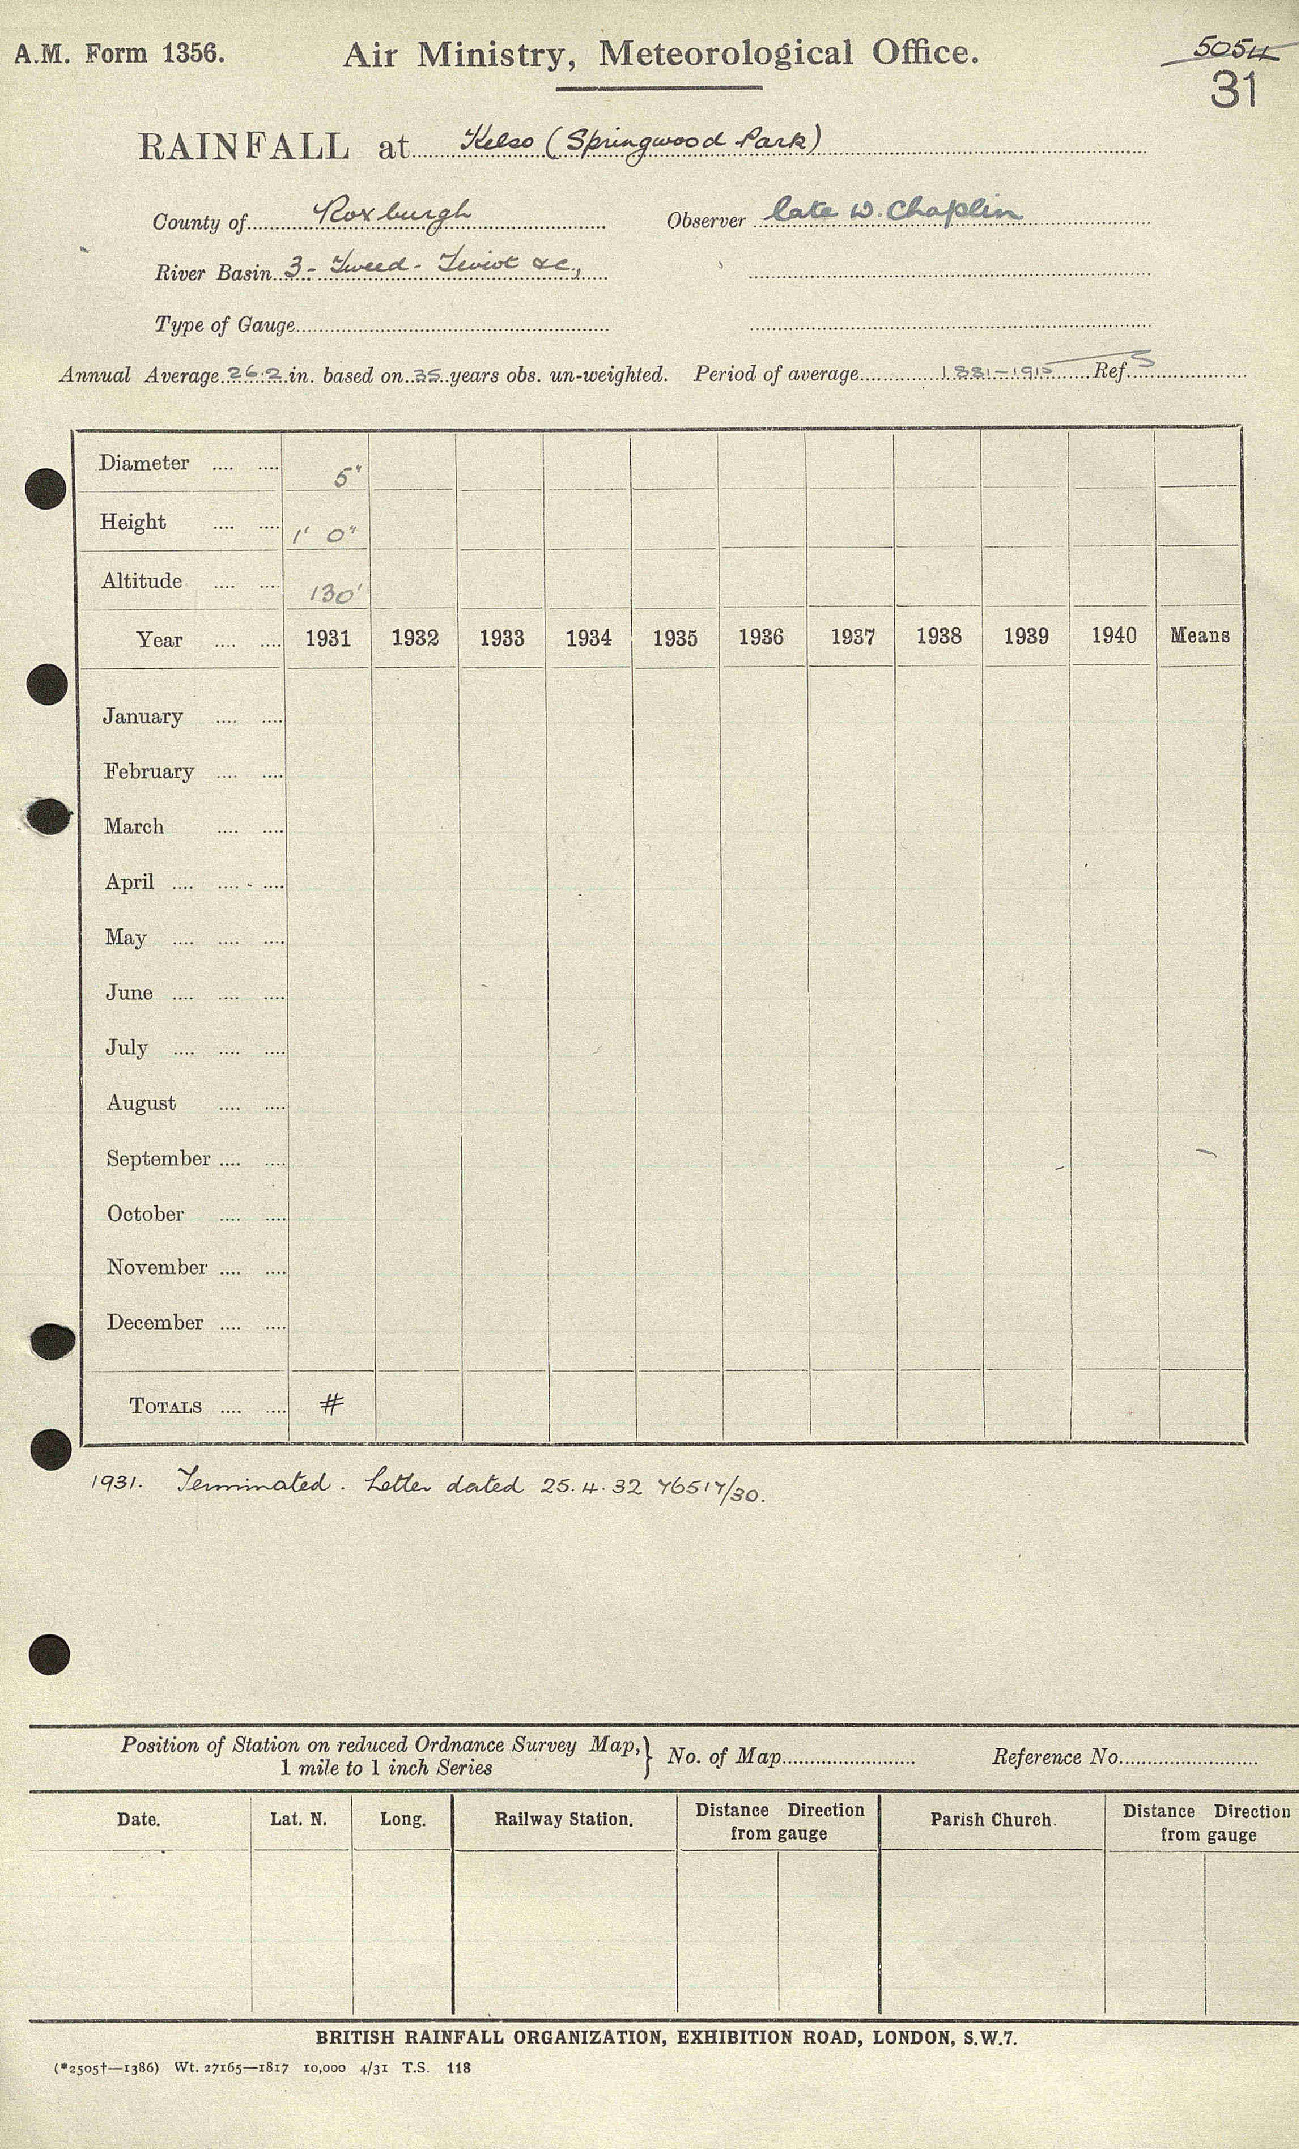 A.M. Form 1356. Air Ministry, Meteorological Office. 5054
31
RAINFALL at Kelso (Springwood Park)
County of Roxburgh Observer late W. Chaplin
River Basin 3 - Tweed - Teviot &c,
Type of Gauge
Annual Average 26.2 in. based on 35 years obs. un-weighted. Period of average 1881-1915 Ref. S
Diameter .... .... 5"
Height .... .... 1' 0"
Altitude .... .... 130'
Year .... .... 1931 1932 1933 1934 1935 1936 1937 1938 1939 1940 Means
January .... ....
February .... ....
March .... ....
April .... .... ....
May .... .... ....
June .... .... ....
July .... .... ....
August .... ....
September .... ....
October .... ....
November .... ....
December .... ....
TOTALS .... .... #
1931. Terminated. Letter dated 25.4.32 76517/30.
Position of Station on reduced Ordnance Survey Map,} No. of Map Reference No.
1 mile to 1 inch Series
Date. Lat. N. Long. Railway Station. Distance Direction from gauge Parish Church. Distance Direction from gauge
BRITISH RAINFALL ORGANIZATION, EXHIBITION ROAD, LONDON, S.W.7.
(*2505†—1386) Wt. 27165—1817 10,000 4/31 T.S. 118